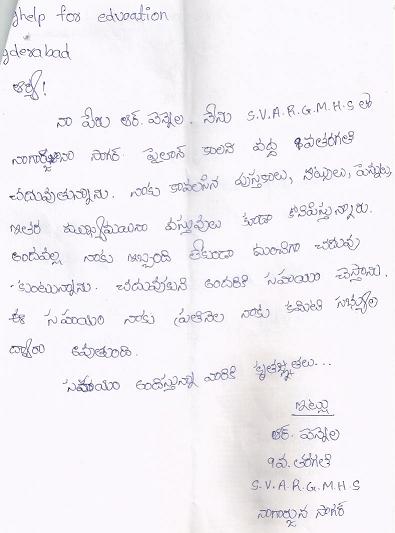 help for education
ఆర్య!
నా పేరు ఆర్. వెన్నెల. నేను S.V.A.R.G.M.H.S లో
నాగార్జున సాగర్ పైలాన్ కాలని వద్ద 9వతరగతి
చదువుతున్నాను. నాకు కావలసిన పుస్తకాలు, నోట్సులు, పెన్నులు,
ఇతర ముఖ్యమయిన వస్తువులు కూడా కొనిపిస్తున్నారు.
అందువల్ల నాకు ఇబ్బంది లేకుండా మంచిగా చదువు
-కుంటున్నాను. చదువుకుని అందరికి సహాయం చేస్తాను.
ఈ సహాయం నాకు ప్రతినెల నాకు కమిటి సభ్యుల
ద్వారా అవుతుంది.
సహాయం అందిస్తున్న వారికి కృతజ్ఞతలు...
ఇట్లు
ఆర్. వెన్నెల
9వ. తరగతి
S.V.A.R.G.M.H.S
నాగార్జున సాగర్